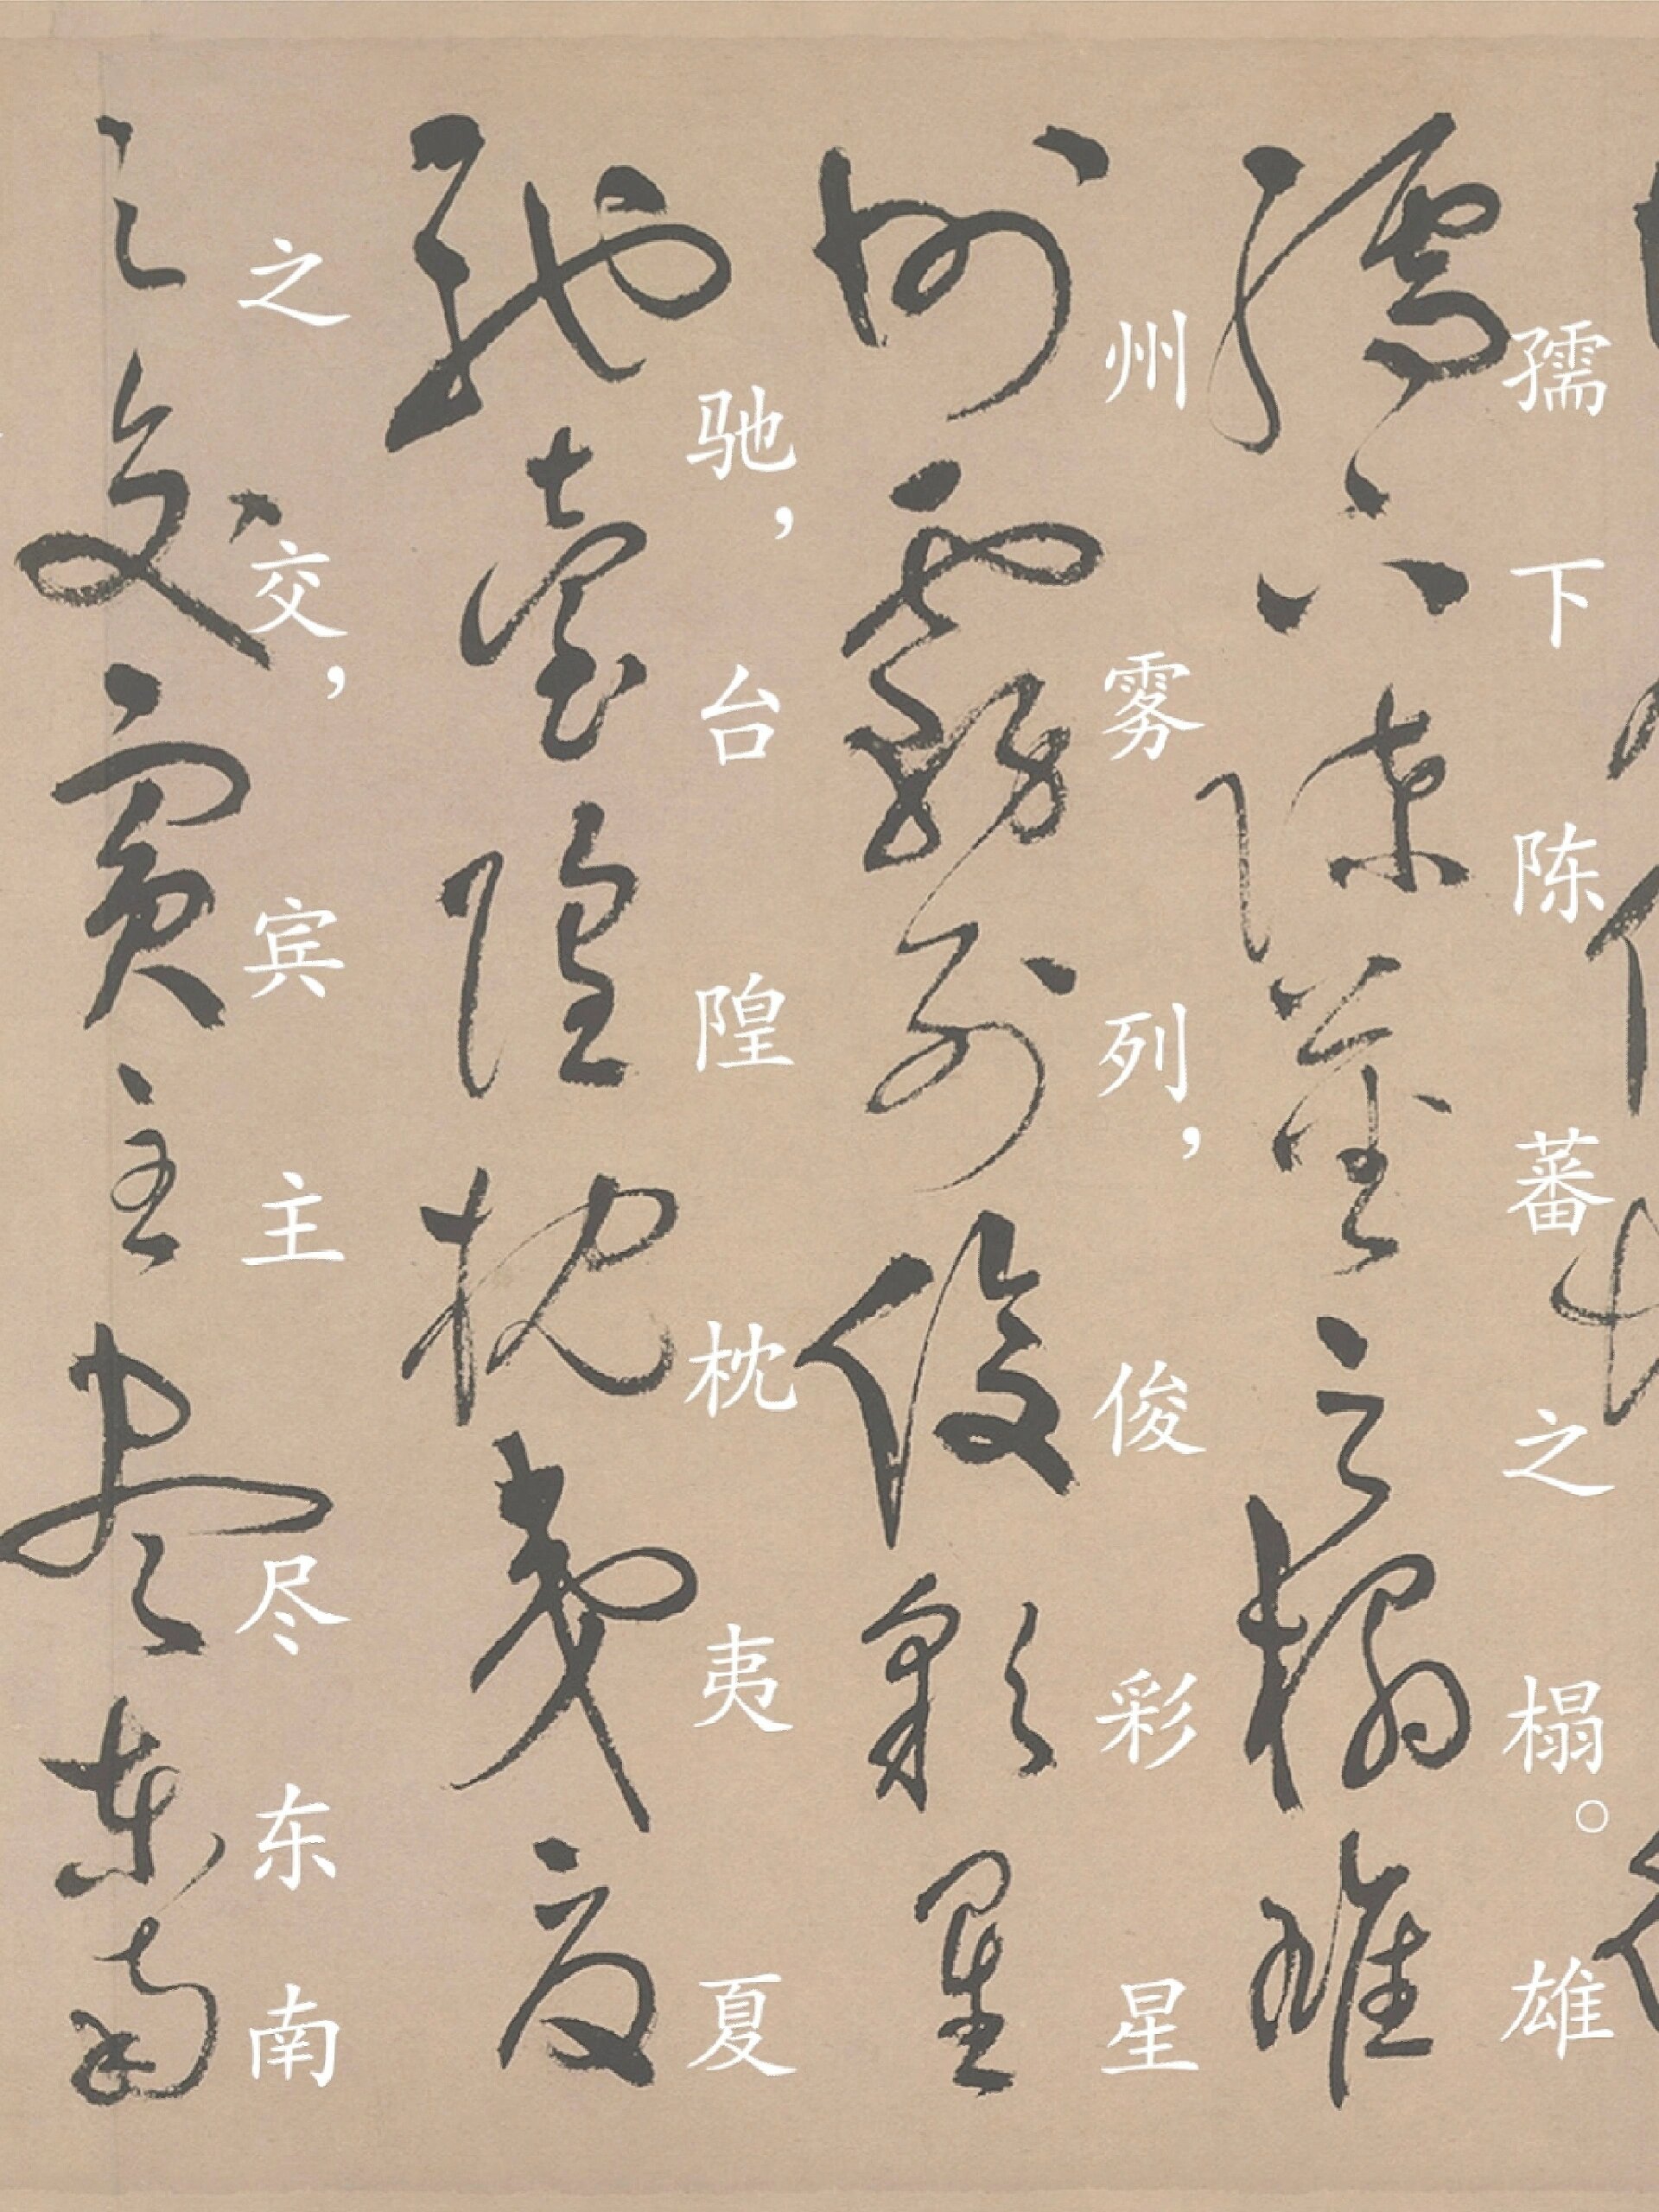 孺下陈蕃之榻。雄
州雾列，俊彩星
驰，台隍枕夷夏
之交，宾主尽东南